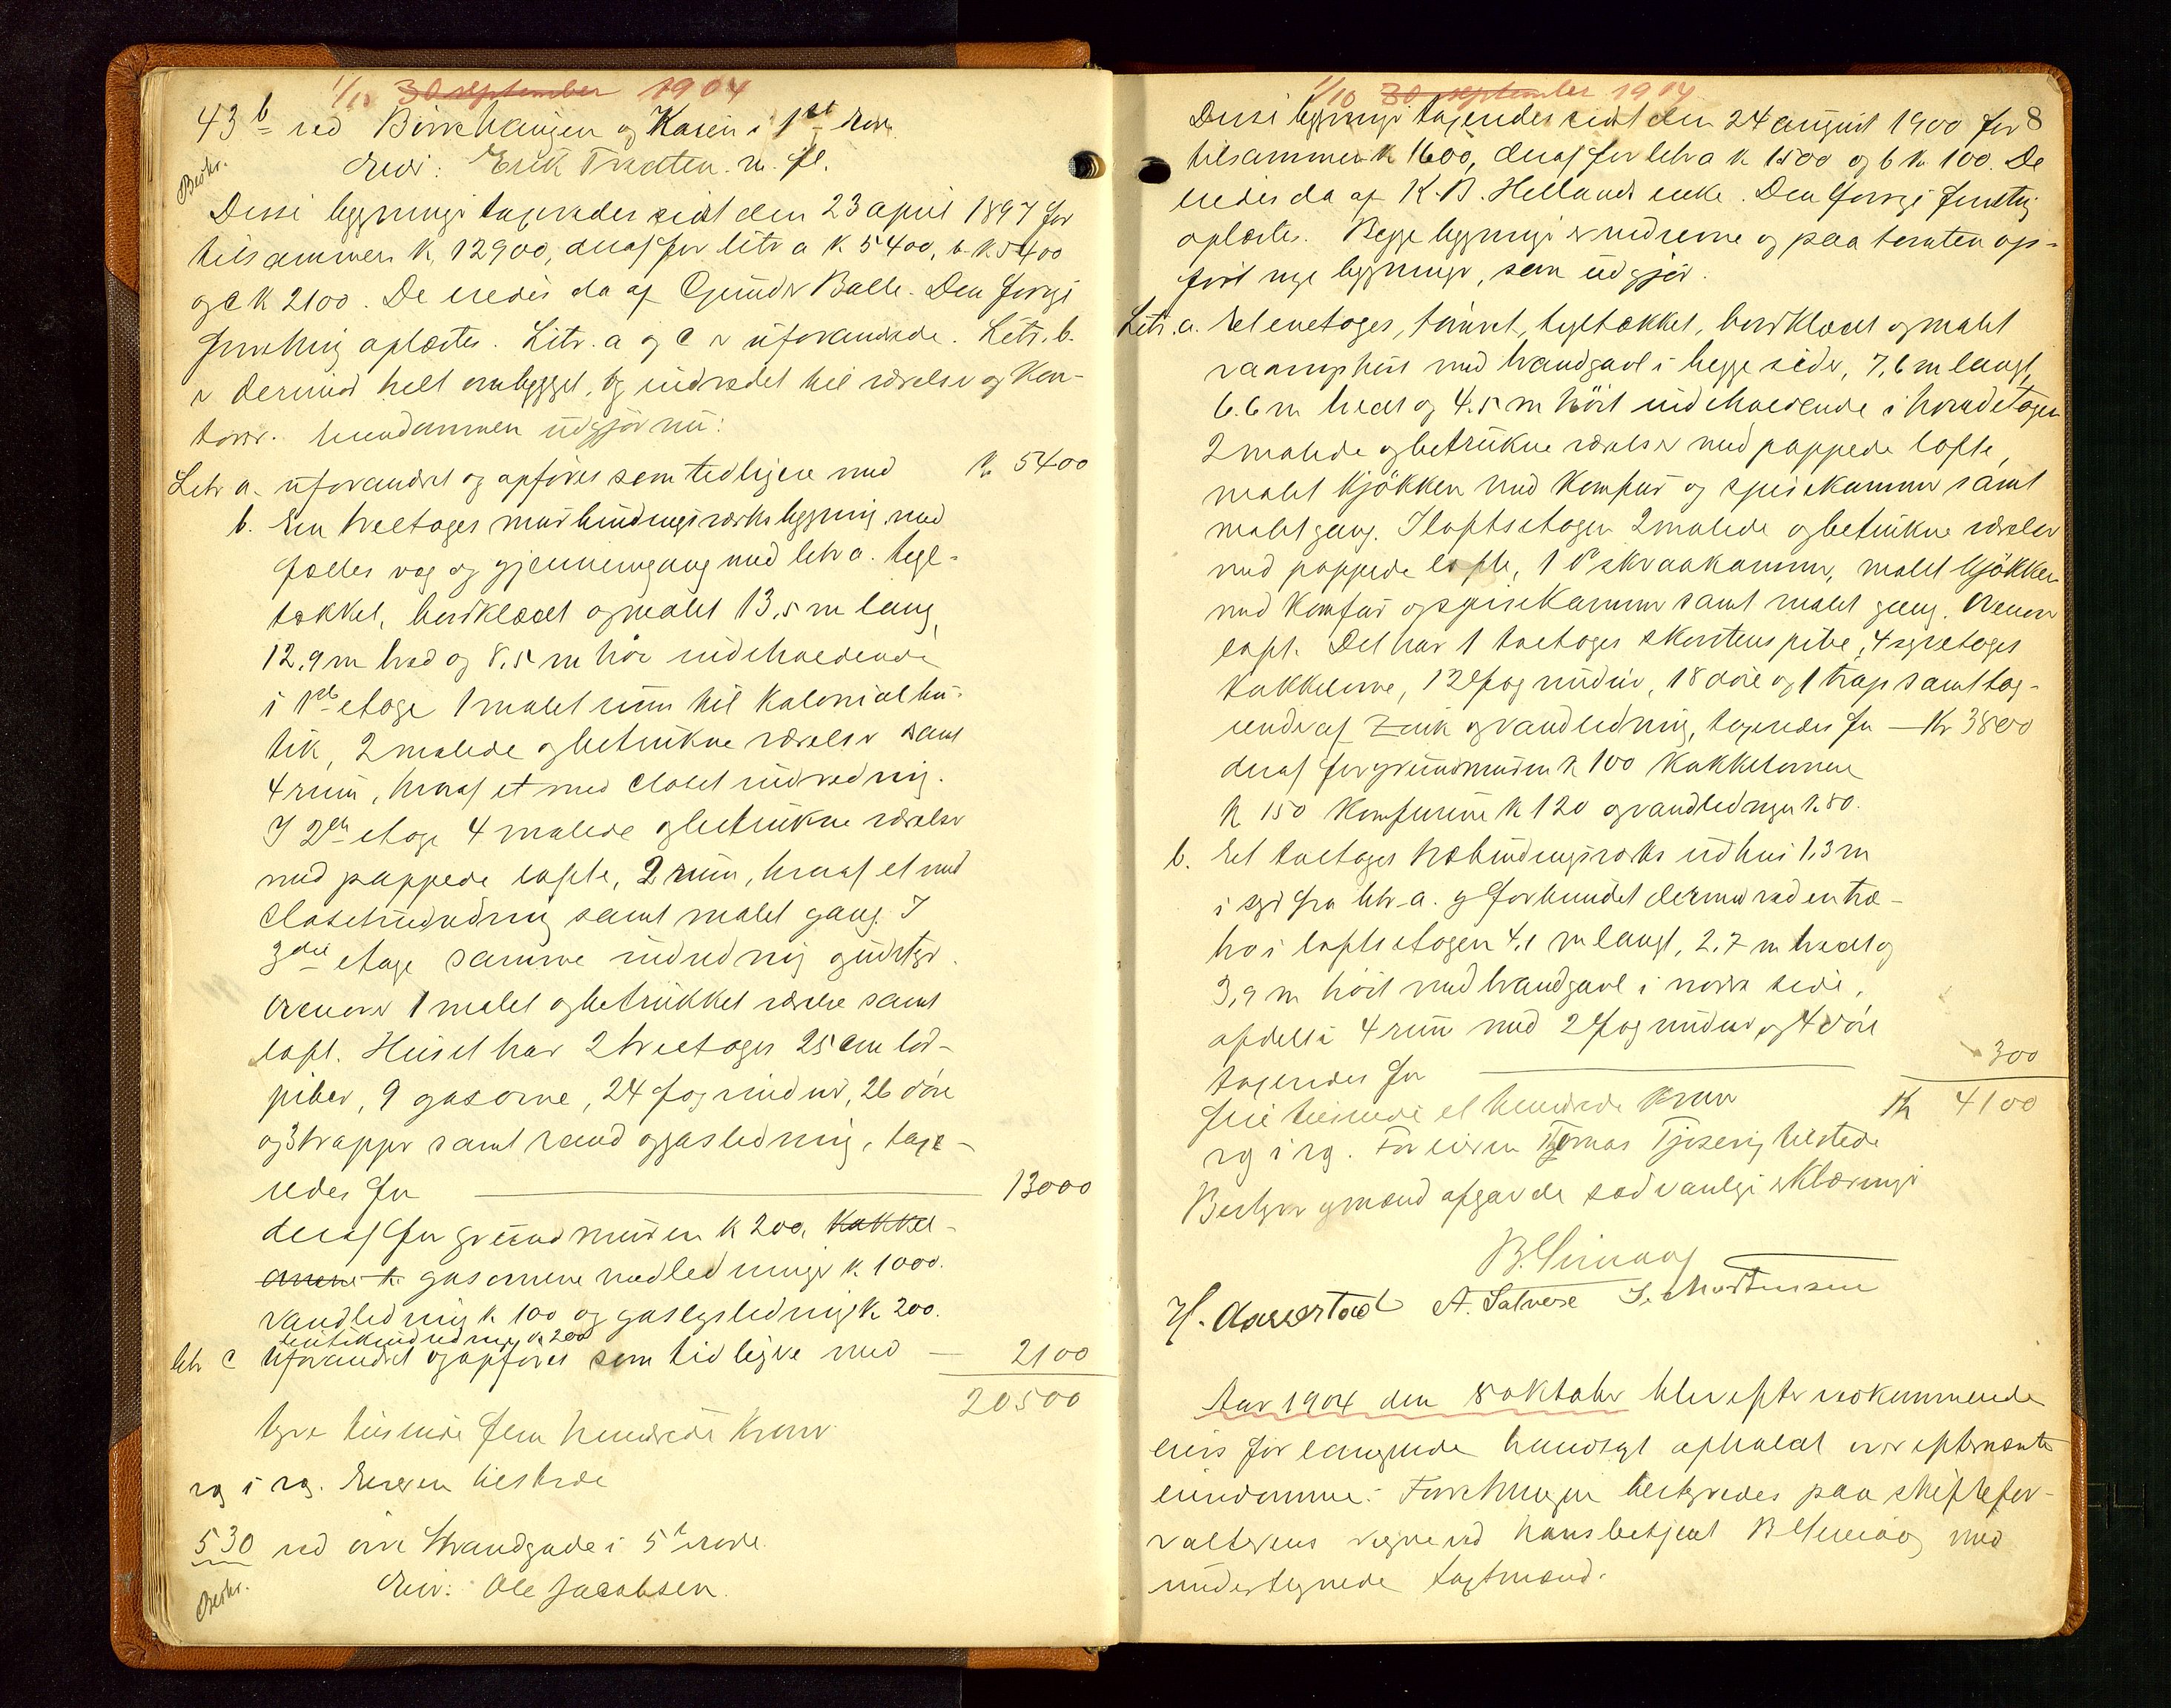 1/10 30 september 1904
43 b ved Børehaugen og Kaien i 1ste rode
Beskr.
Eier: Erik Tveten m. fl.
Disse bygninger taxeredes sidst den 23 april 1897 for
tilsammen k. 12900, deraf for litr a k 5400, b k 5400
og c k 2100. De eiedes da af Gunder Balle. Den forrige
forretning oplæstes. Litr. a og c er uforandrede. Litr. b.
er derimod helt ombygget, og indredet til værelser og kon-
torer. Eiendommen udgjør nu:
Litr a. uforandret og opføres som tidligere med k. 5400
b. En treetages murbindingsværks bygning med
fælles væg og gjennemgang med litr a. tegl-
tækket, bordklædt og malet 13,5 m lang,
12,9 m bred og 8,5 m høi indeholdende
i 1ste etage 1 malet rum til kolonialbu-
tik, 2 malede og betrukne værelser samt
4 rum, hvoraf et med closet indredning.
I 2den etage 4 malede og betrukne værelser
med pappede lofte, 2 rum, hvoraf et med
closetindredning samt malet gang. I
3die etage samme indredning og udstyr.
Ovenover 1 malet og betrukket værelse samt
loft. Huset har 2 treetages 25 cm lod-
piber, 9 gasovne, 24 fag vinduer, 26 døre
og 3 trapper samt vand og gasledning, taxe-
redes for 13000
deraf for grundmuren k 200, kakkel-
ovnene k. gasovnene med ledninger k. 1000.
vandledning k. 100 og gaslysledning k. 200.
butikindredning k 200
litr c uforandret og opføres som tidligere med 2100
20500
tyve tusinde fem hundrede kroner
vg i vg. Eieren tilstede
530 ved øvre Strandgade i 5te rode.
Beskr.
Eier: Ole Jacobsen.
1/10 30 september 1904
8
Disse bygninger taxeredes sidst den 24 august 1900 for
tilsammen k 1600, deraf for litr a k 1500 og b k. 100. De
eiedes da af K. B. Hellands enke. Den forrige forretning
oplæstes. Begge bygninger er nedrevne og paa tomten op-
ført nye bygninger, som udgjør.
Litr. a. Et enetages, tømret, tegltækket, bordklædt og malet
vaaningshus med brandgavl i begge sider, 7,6 m langt,
6.6 m bredt og 4.5 m høit indeholdende i hovedetagen
2 malede og betrukne værelser med pappede lofte,
malet kjøkken med komfur og spisekammer samt
malet gang. I loftsetagen 2 malede og betrukne værelser
med pappede lofte, 1 do skraakammer, malet kjøkken
med komfur og spisekammer samt malet gang. Ovenover
loft. Det har 1 toetages skorstenspibe, 4 syvetages
kakkelovne, 12 fag vinduer, 18 døre og 1 trap samt tag-
render af zink og vandledning, taxeredes for — Kr 3800
deraf for grundmuren k 100 kakkelovnene
k 150 komfurene k 120 og vandledningen k. 50.
b. Et toetages træbindingsværks udhus 1.3 m
i syd fra litr. a. og forbundet dermed ved en træ-
bro i loftsetagen 4,1 m langt, 2.7 m bredt og
3,9 m høit med brandgavl i nordre side,
afdelt i 4 rum med 2 fag vinduer og 4 døre
taxeredes for 300
fire tusinde et hundrede kroner Kr 4100
vg i vg. For eieren Tomas Tjøsevig tilstede
Bestyrer og mænd afgav de sædvanlige erklæringer
B. Simaas
H. Aaserstad A. Salvese S. Mortensen
Aar 1904 den 8 oktober blev efter vedkommende
eiers forlangende brandtaxt afholdt over efternævnte
eiendomme. Forretningen bestyredes paa skiftefor-
valterens vegne ved hans betjent B Simaas med
undertegnede taxtmænd.